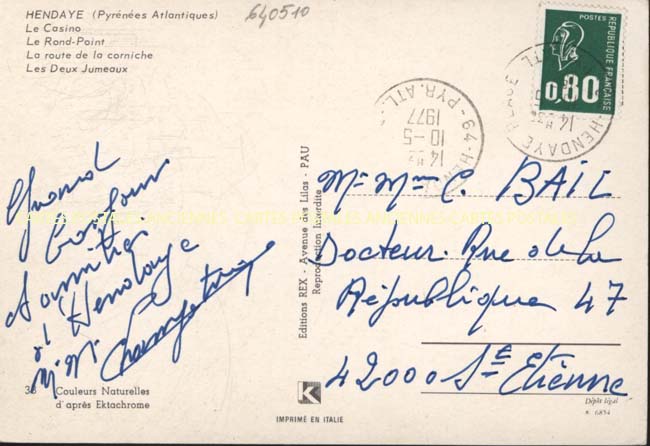 HENDAYE (Pyrénées Atlantiques)
Le Casino
Le Rond-Point
La route de la corniche
Les Deux Jumeaux
640510
POSTES
REPUBLIQUE FRANÇAISE
0,80
64-HENDAYE PLAGE
PYR. ATL.
14 H
10-5
1977
Grand
bonjour
d'amitié
d'Hendaye
Mr Mme
Mr Mme C. BAIL
Docteur Rue de la
République 47
42000 St Etienne
Editions REX - Avenue des Lilas - PAU
Reproduction Interdite
CARTES POSTALES ANCIENNES
Couleurs Naturelles
d'après Ektachrome
K
IMPRIMÉ EN ITALIE
Dépôt légal